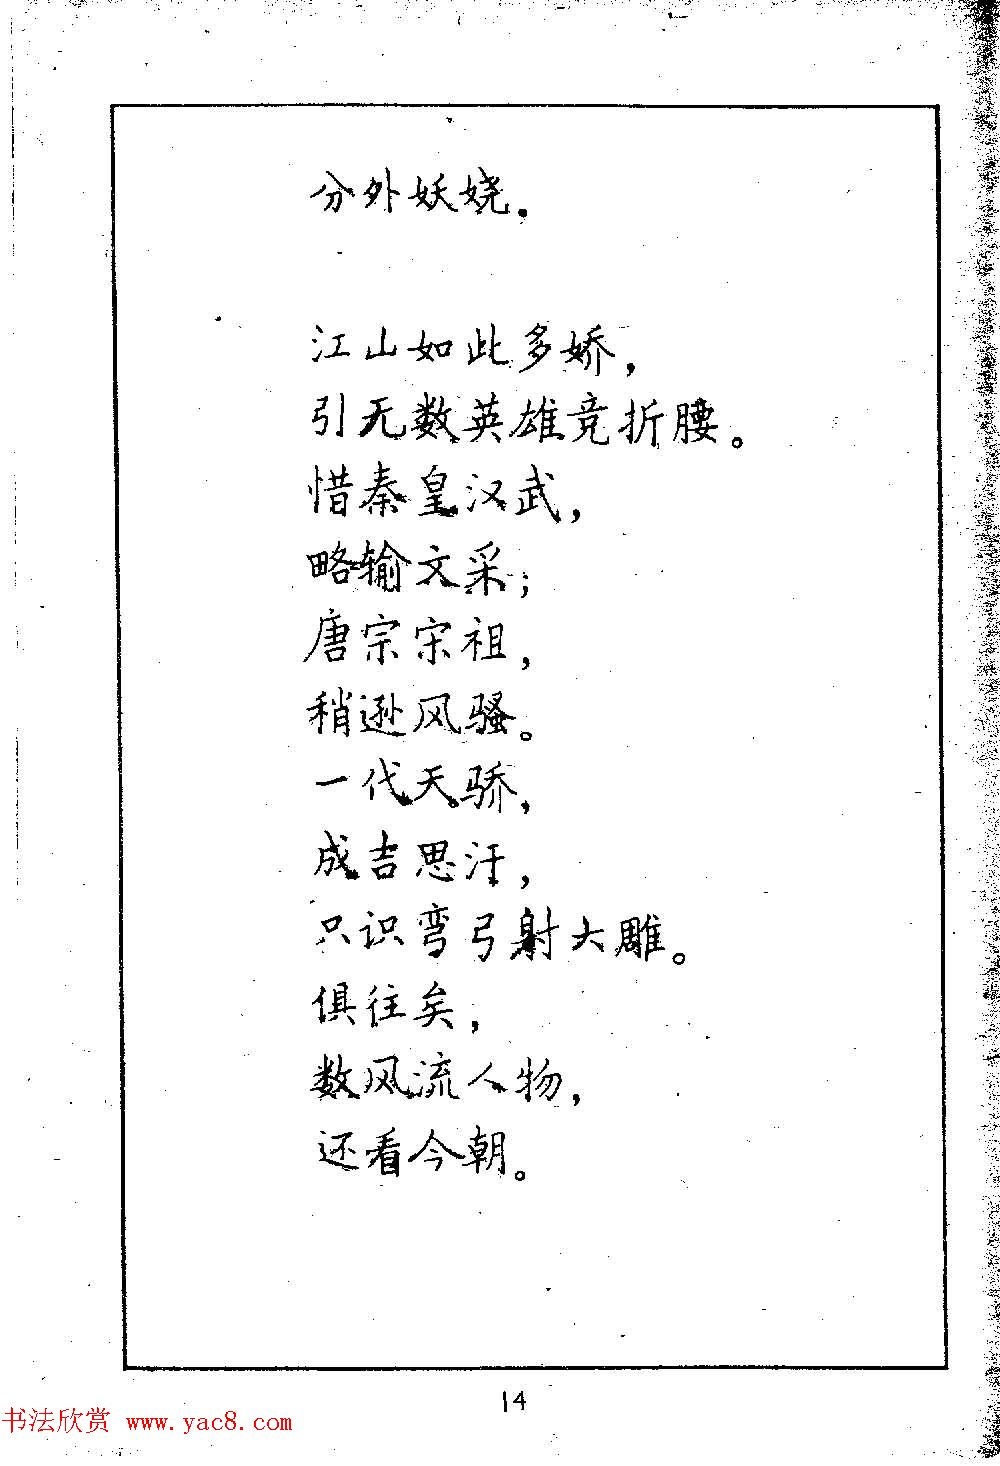 分外妖娆.
江山如此多娇,
引无数英雄竞折腰。
惜秦皇汉武,
略输文采;
唐宗宋祖,
稍逊风骚。
一代天骄,
成吉思汗,
只识弯弓射大雕。
俱往矣,
数风流人物,
还看今朝。
14
书法欣赏 www.yac8.com